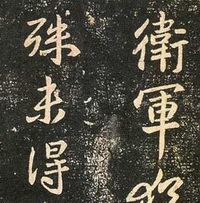 衛軍
殊未得